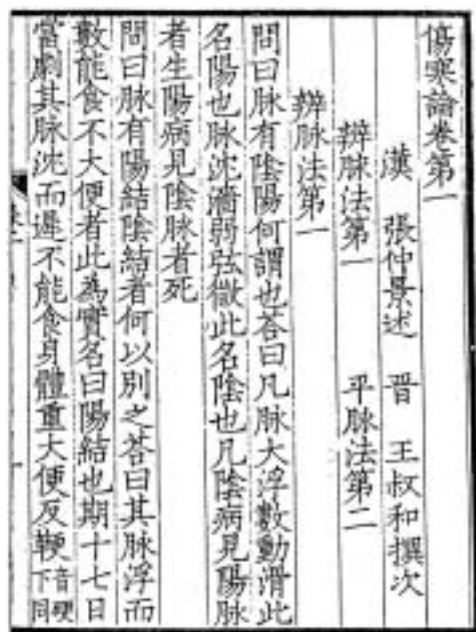 傷寒論卷第一
漢　張仲景述　晋　王叔和撰次
辨脉法第一　平脉法第二
辨脉法第一
問曰脉有陰陽何謂也荅曰凡脉大浮數動滑此
名陽也脉沈濇弱弦微此名陰也凡陰病見陽脉
者生陽病見陰脉者死
問曰脉有陽結陰結者何以别之荅曰其脉浮而
數能食不大便者此為實名曰陽結也期十七日
當劇其脉沈而遲不能食身體重大便反鞕音硬下同